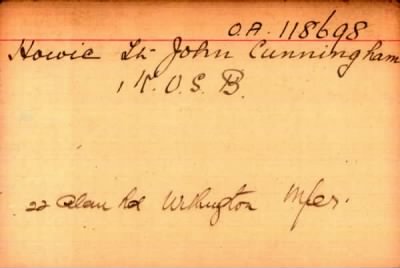 O.A. 118698
Howie Lt John Cunningham
1 K.O.S.B.
22 Rd Withington M/cr.